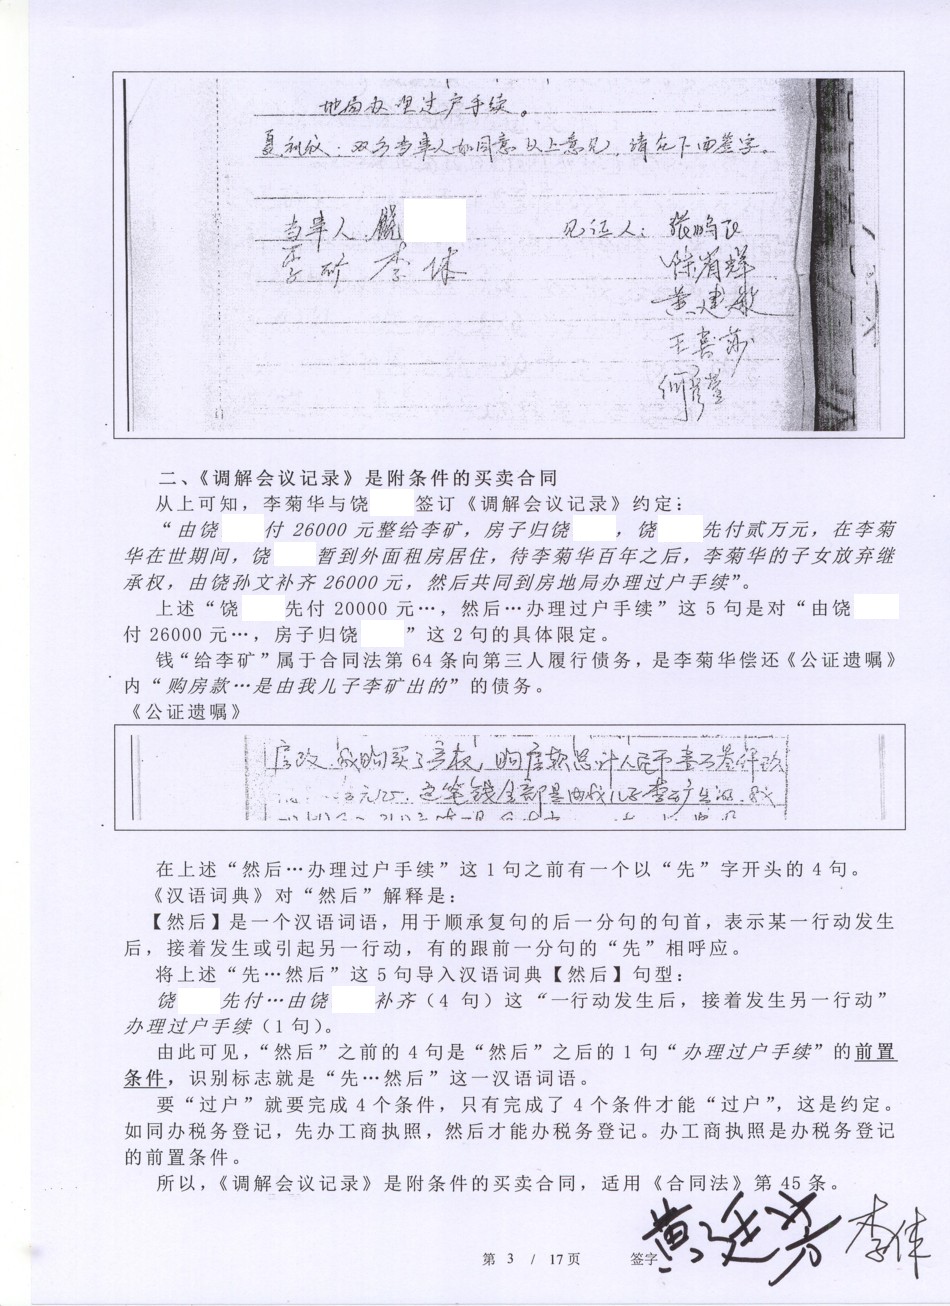 地局办理过户手续。
双方当事人如同意以上意见，请在下面签字。
当事人 饶 见证人：
李矿 李
二、《调解会议记录》是附条件的买卖合同
从上可知，李菊华与饶 签订《调解会议记录》约定：
“由饶 付 26000 元整给李矿，房子归饶 ，饶 先付贰万元，在李菊
华在世期间，饶 暂到外面租房居住，待李菊华百年之后，李菊华的子女放弃继
承权，由饶孙文补齐 26000 元，然后共同到房地局办理过户手续”。
上述“饶 先付 20000 元…，然后…办理过户手续”这 5 句是对“由饶
付 26000 元…，房子归饶 ”这 2 句的具体限定。
钱“给李矿”属于合同法第 64 条向第三人履行债务，是李菊华偿还《公证遗嘱》
内“购房款…是由我儿子李矿出的”的债务。
《公证遗嘱》
房改，我购买了产权，购房款总计人民币壹万叁仟玖
元，这笔钱全部是由我儿子李矿出的，我
在上述“然后…办理过户手续”这 1 句之前有一个以“先”字开头的 4 句。
《汉语词典》对“然后”解释是：
【然后】是一个汉语词语，用于顺承复句的后一分句的句首，表示某一行动发生
后，接着发生或引起另一行动，有的跟前一分句的“先”相呼应。
将上述“先…然后”这 5 句导入汉语词典【然后】句型：
饶 先付…由饶 补齐（4 句）这“一行动发生后，接着发生另一行动”
办理过户手续（1 句）。
由此可见，“然后”之前的 4 句是“然后”之后的 1 句“办理过户手续”的前置
条件，识别标志就是“先…然后”这一汉语词语。
要“过户”就要完成 4 个条件，只有完成了 4 个条件才能“过户”，这是约定。
如同办税务登记，先办工商执照，然后才能办税务登记。办工商执照是办税务登记
的前置条件。
所以，《调解会议记录》是附条件的买卖合同，适用《合同法》第 45 条。
第 3 / 17 页 签字 黄廷芳 李伟